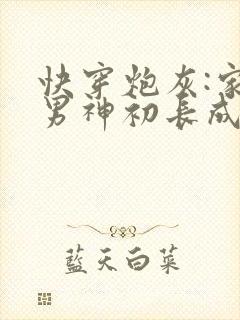 快穿炮灰:家
男神初长成
藍天白菜